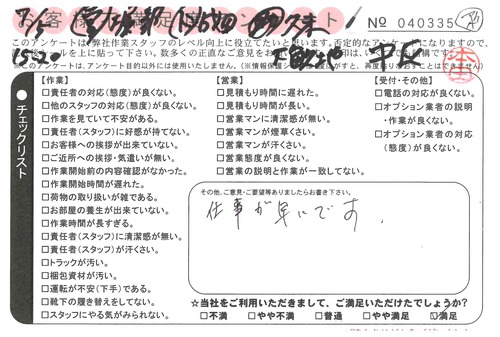 お客様 満足度アンケート
No 040335
このアンケートは弊社作業スタッフのレベル向上に役立てたいと思います。否定的なアンケートになりますので、
15:20
チェックリスト
【作業】
□責任者の対応(態度)が良くない。
□他のスタッフの対応(態度)が良くない。
□作業を見ていて不安がある。
□責任者(スタッフ)に好感が持てない。
□お客様への挨拶が出来ていない。
□ご近所への挨拶・気遣いが無い。
□作業開始前の内容確認がなかった。
□作業開始時間が遅れた。
□荷物の取り扱いが雑である。
□お部屋の養生が出来ていない。
□作業時間が長すぎる。
□責任者(スタッフ)に清潔感が無い。
□責任者(スタッフ)が汗くさい。
□トラックが汚い。
□梱包資材が汚い。
□運転が不安(下手)である。
□靴下の履き替えをしてない。
□スタッフにやる気がみられない。
【営業】
□見積もり時間に遅れた。
□見積もり時間が長い。
□営業マンに清潔感が無い。
□営業マンが煙草くさい。
□営業マンが汗くさい。
□営業態度が良くない。
□営業の説明と作業が一致してない。
【受付・その他】
□電話の対応が良くない。
□オプション業者の説明
・作業が良くない。
□オプション業者の対応
(態度)が良くない。
その他、ご意見・ご要望等ありましたらお書き下さい。
仕事が早いです。
☆当社をご利用いただきまして、ご満足いただけたでしょうか?
□不満 □やや不満 □普通 □やや満足 ☑満足